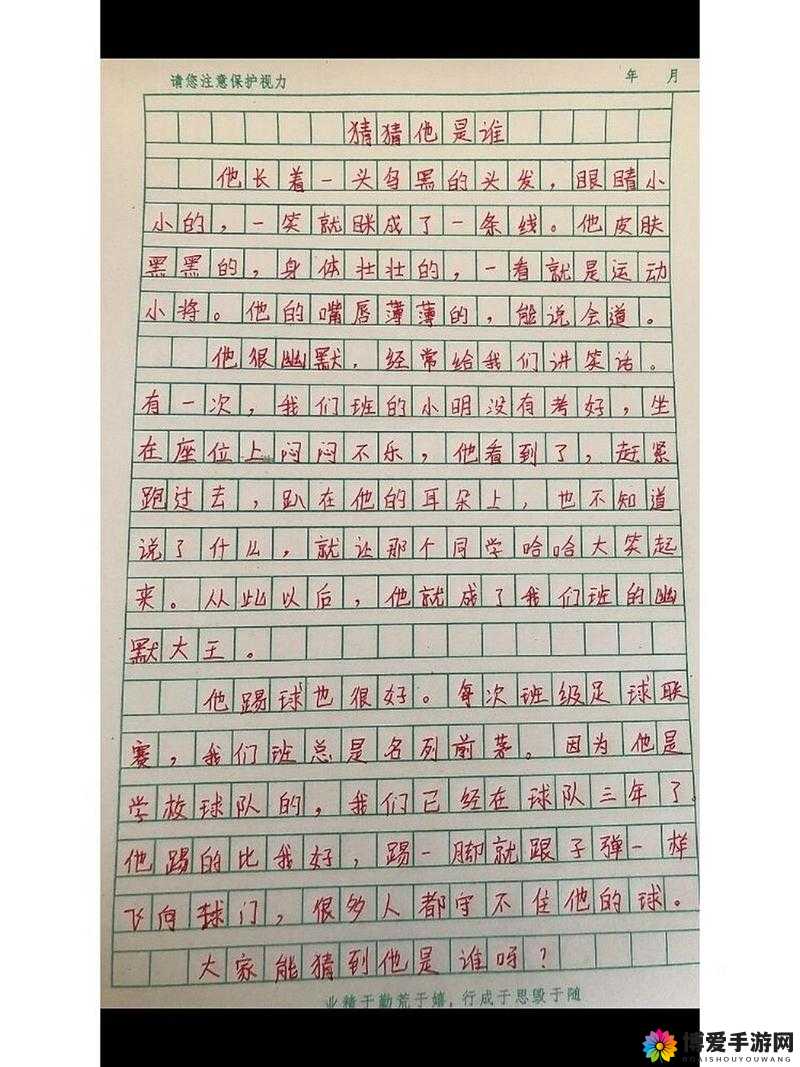 请您注意保护视力 年 月
猜猜他是谁
他长着一头乌黑的头发，眼睛小
小的，一笑就眯成了一条线。他皮肤
黑黑的，身体壮壮的，一看就是运动
小将。他的嘴唇薄薄的，能说会道。
他很幽默，经常给我们讲笑话。
有一次，我们班的小明没有考好，坐
在座位上闷闷不乐，他看到了，赶紧
跑过去，趴在他的耳朵上，也不知道
说了什么，就让那个同学哈哈大笑起
来。从此以后，他就成了我们班的幽
默大王。
他踢球也很好。每次班级足球联
赛，我们班总是名列前茅。因为他是
学校球队的，我们已经在球队三年了。
他踢的比我好，踢一脚就跟子弹一样
飞向球门，很多人都守不住他的球。
大家能猜到他是谁呀？
业精于勤荒于嬉，行成于思毁于随
博爱手游网
BOAISHOUYOUWANG